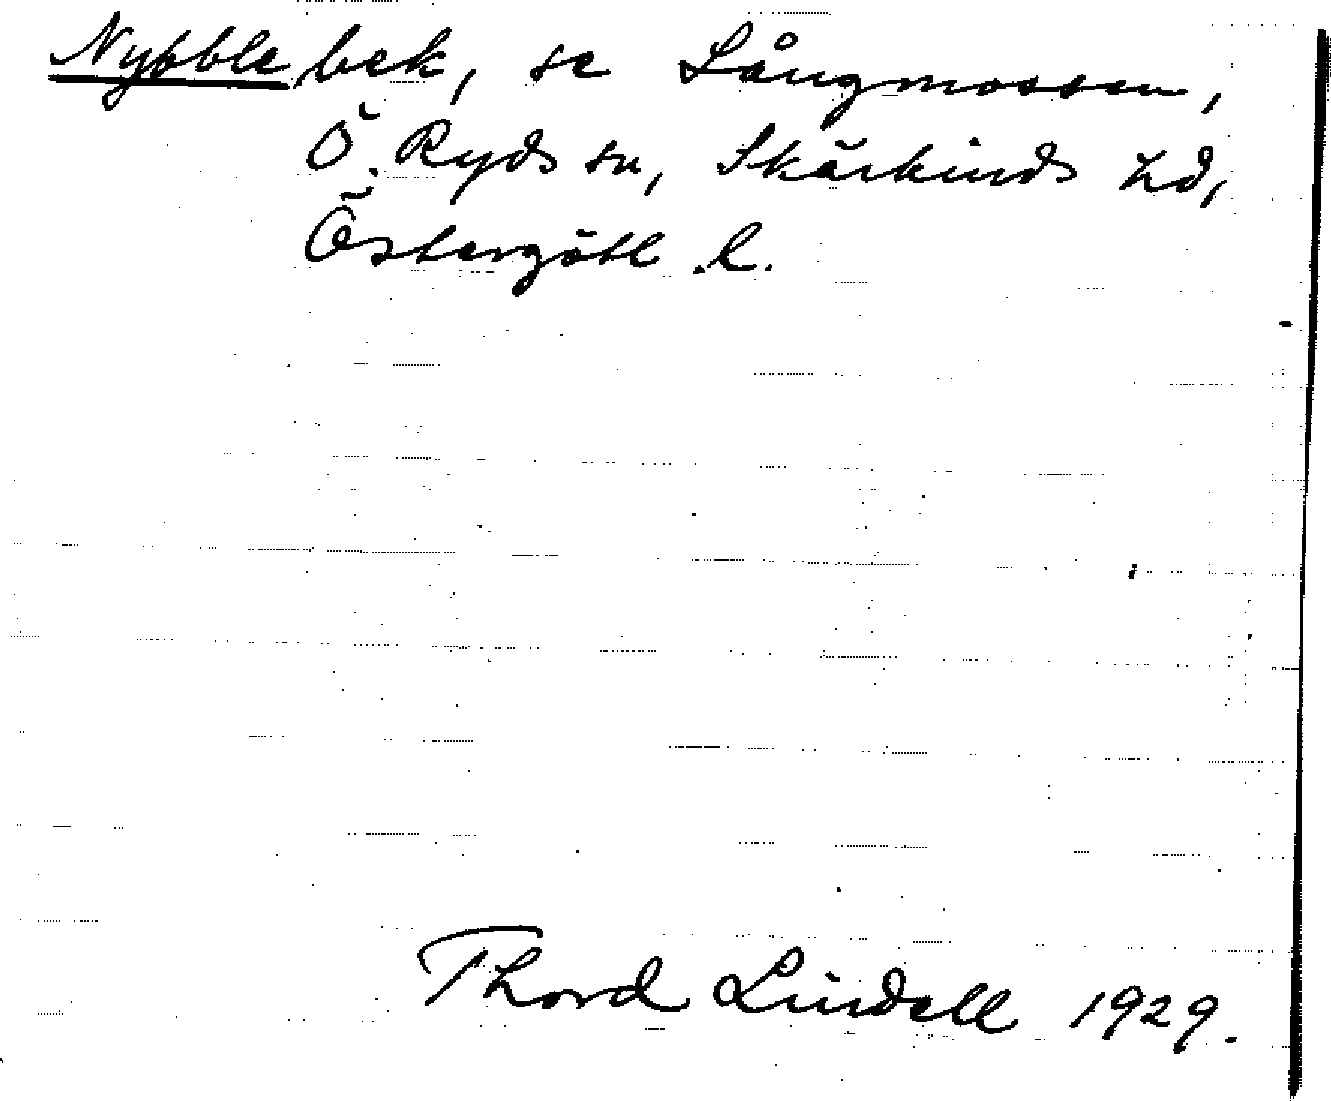 Nybble bek, se Långmossen,
Ö. Ryds sn, Skärkinds hd,
Östergötl. l.
Thord Lindell 1929.